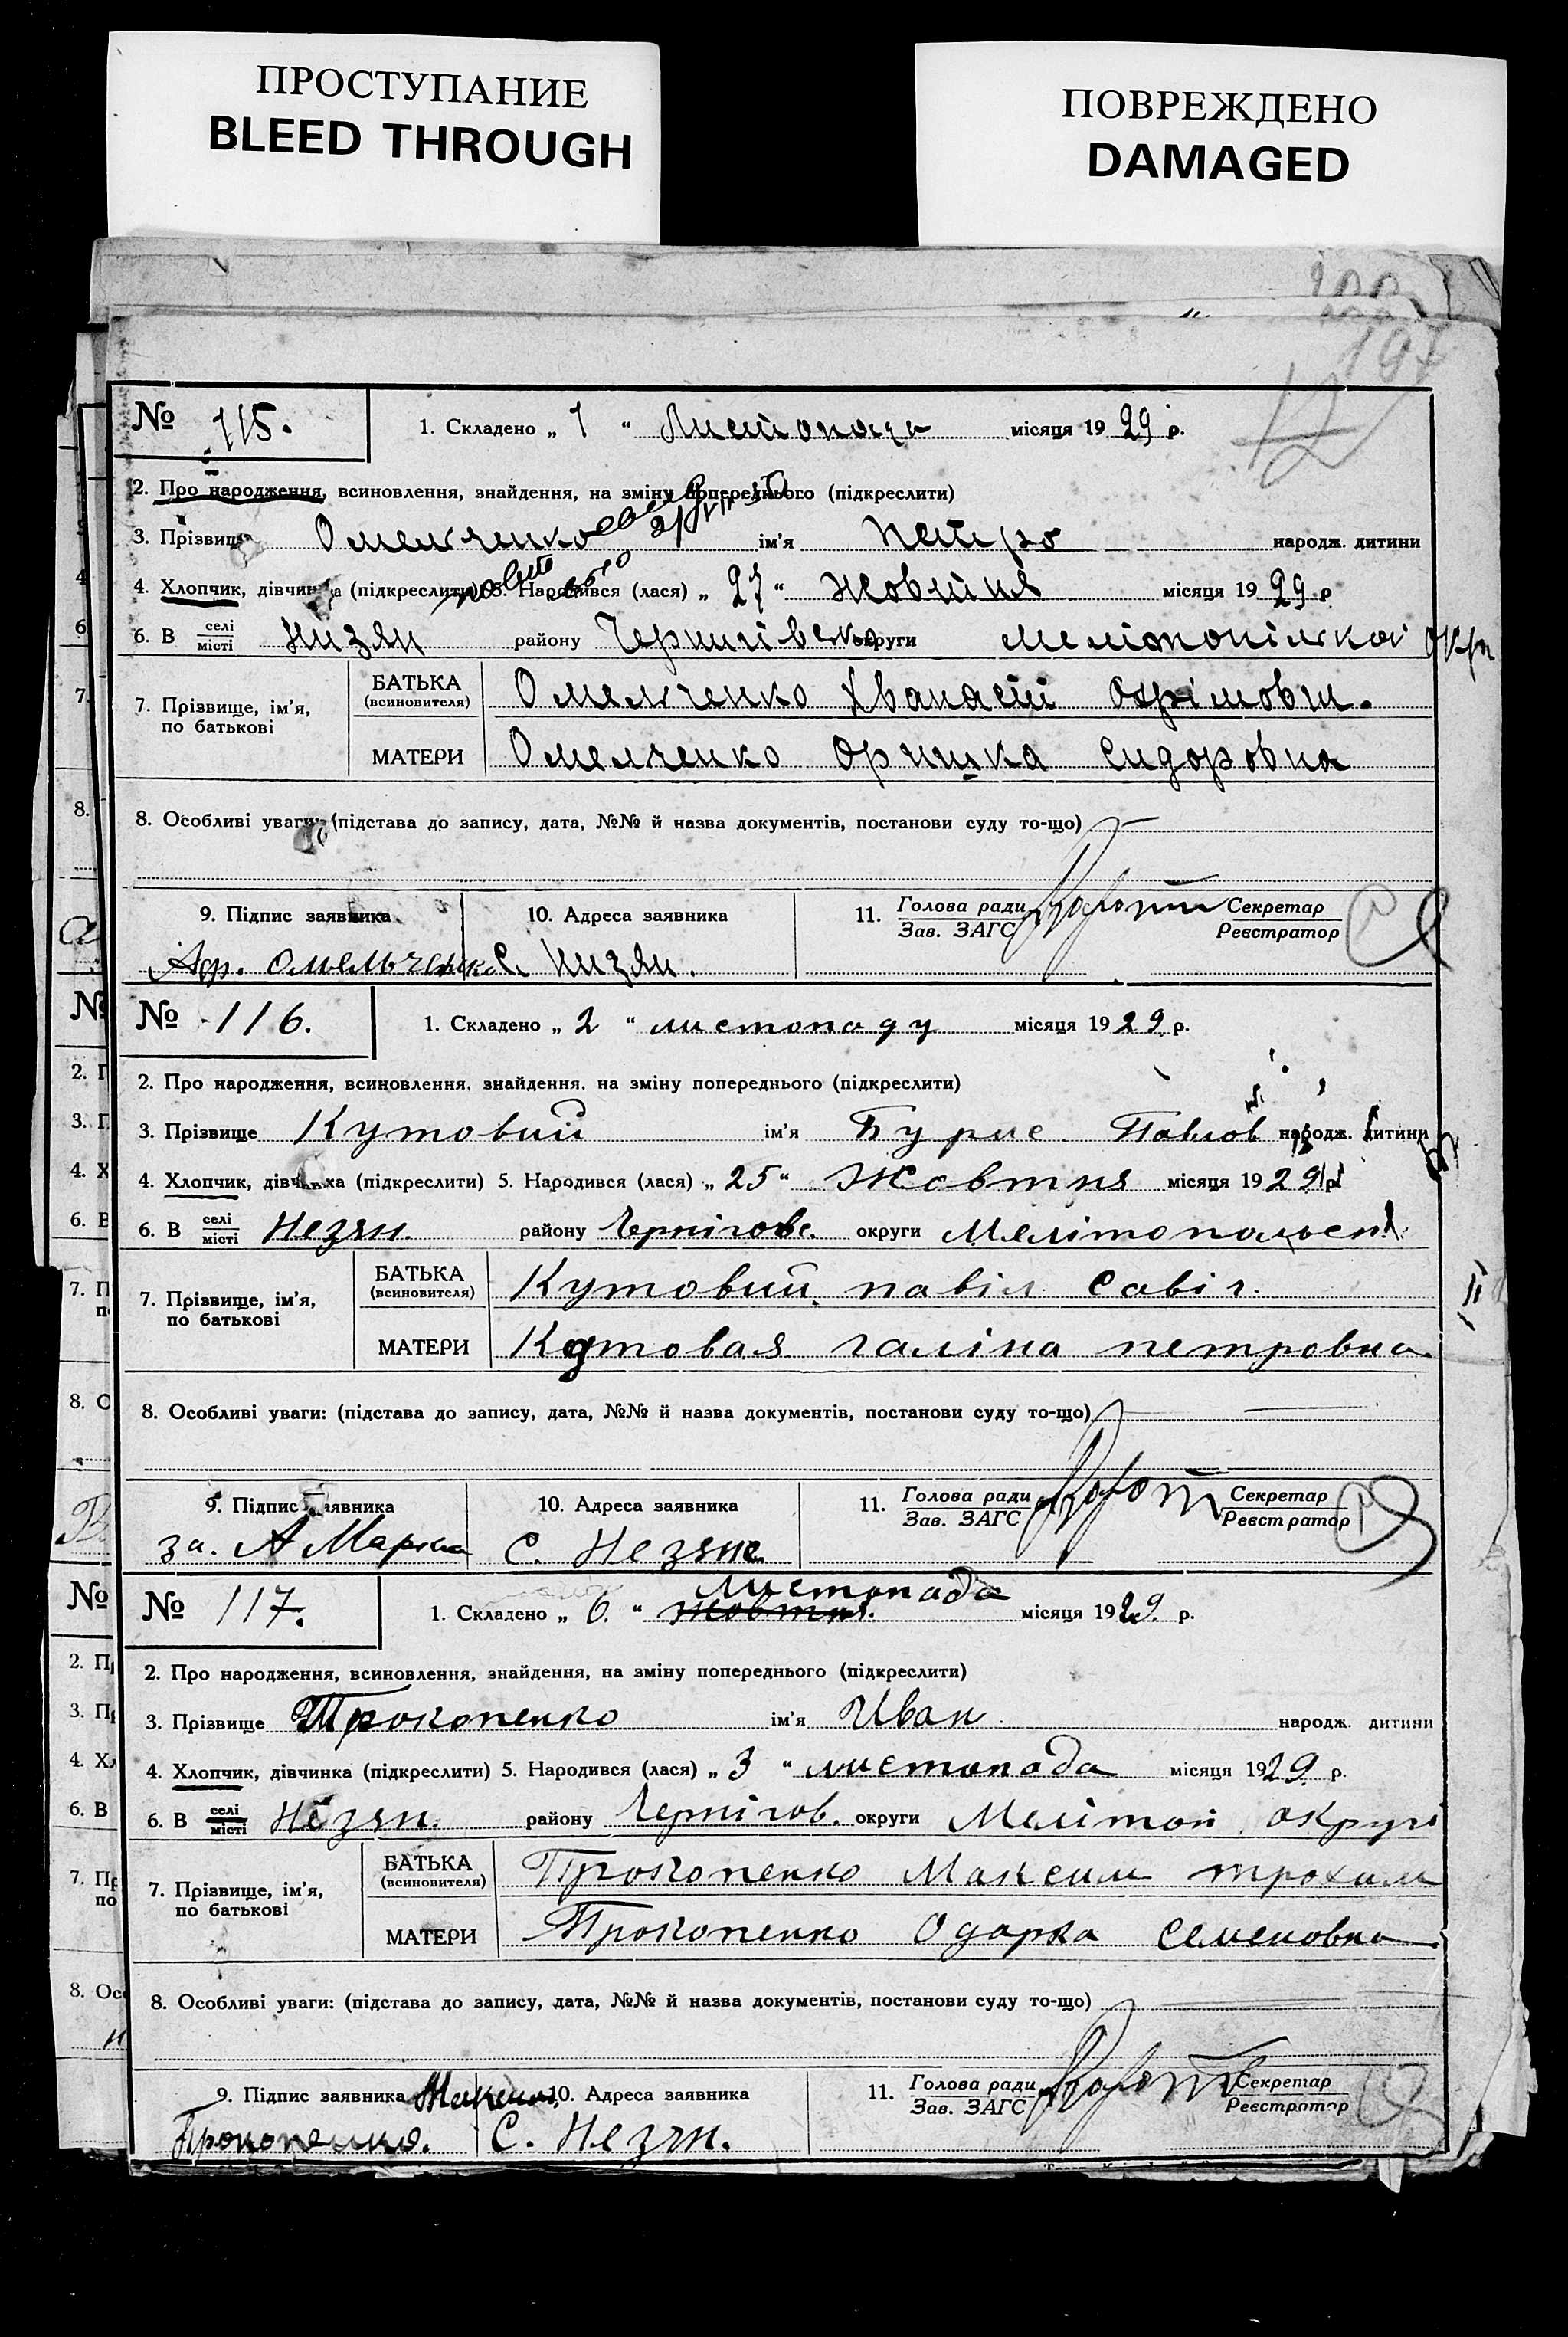 ПРОСТУПАНИЕ
BLEED THROUGH
ПОВРЕЖДЕНО
DAMAGED
197
№ 115. 1. Складено „ 1 “ Листопада місяця 1929 р.
2. Про народження, всиновлення, знайдення, на зміну попереднього (підкреслити)
3. Прізвище Омельченко ім'я Петро народж. дитини
4. Хлопчик, дівчинка (підкреслити) 5. Народився (лася) „ 27 “ жовтня місяця 1929 р
6. В селі/місті Низян району Чернигівська округи Мелітопільскої окр
7. Прізвище, ім'я, по батькові
БАТЬКА (всиновителя) Омельченко Хванасій
МАТЕРИ Омелченко Оришка Сидоровна
8. Особливі уваги: (підстава до запису, дата, №№ й назва документів, постанови суду то-що)
9. Підпис заявника 10. Адреса заявника 11. Голова ради/Зав. ЗАГС Секретар/Реєстратор
Аф. Омельченко С. Низян.
№ 116. 1. Складено „ 2 “ листопаду місяця 1929 р.
2. Про народження, всиновлення, знайдення, на зміну попереднього (підкреслити)
3. Прізвище Кутовий ім'я Бурис Павлов народж. дитини
4. Хлопчик, дівчинка (підкреслити) 5. Народився (лася) „ 25 “ Жовтня місяця 1929 р
6. В селі/місті Незян. району Черніговс. округи
7. Прізвище, ім'я, по батькові
БАТЬКА (всиновителя) Кутовий павіл Савіл.
МАТЕРИ Кутовая галіна петровна
8. Особливі уваги: (підстава до запису, дата, №№ й назва документів, постанови суду то-що)
9. Підпис заявника 10. Адреса заявника 11. Голова ради/Зав. ЗАГС Секретар/Реєстратор
за. А С. Незяне
№ 117. 1. Складено „ 6. “ жовтня. листопада місяця 1929. р.
2. Про народження, всиновлення, знайдення, на зміну попереднього (підкреслити)
3. Прізвище Прокопенко ім'я Иван народж. дитини
4. Хлопчик, дівчинка (підкреслити) 5. Народився (лася) „ 3 “ листопада місяця 1929 р.
6. В селі/місті Незян. району Чернігов. округи Мелітоп округи
7. Прізвище, ім'я, по батькові
БАТЬКА (всиновителя) Прокопенко Максим трохим
МАТЕРИ Прокопенко Одарка Семеновна
8. Особливі уваги: (підстава до запису, дата, №№ й назва документів, постанови суду то-що)
9. Підпис заявника 10. Адреса заявника 11. Голова ради/Зав. ЗАГС Секретар/Реєстратор
Прокопенко. С. Незян.